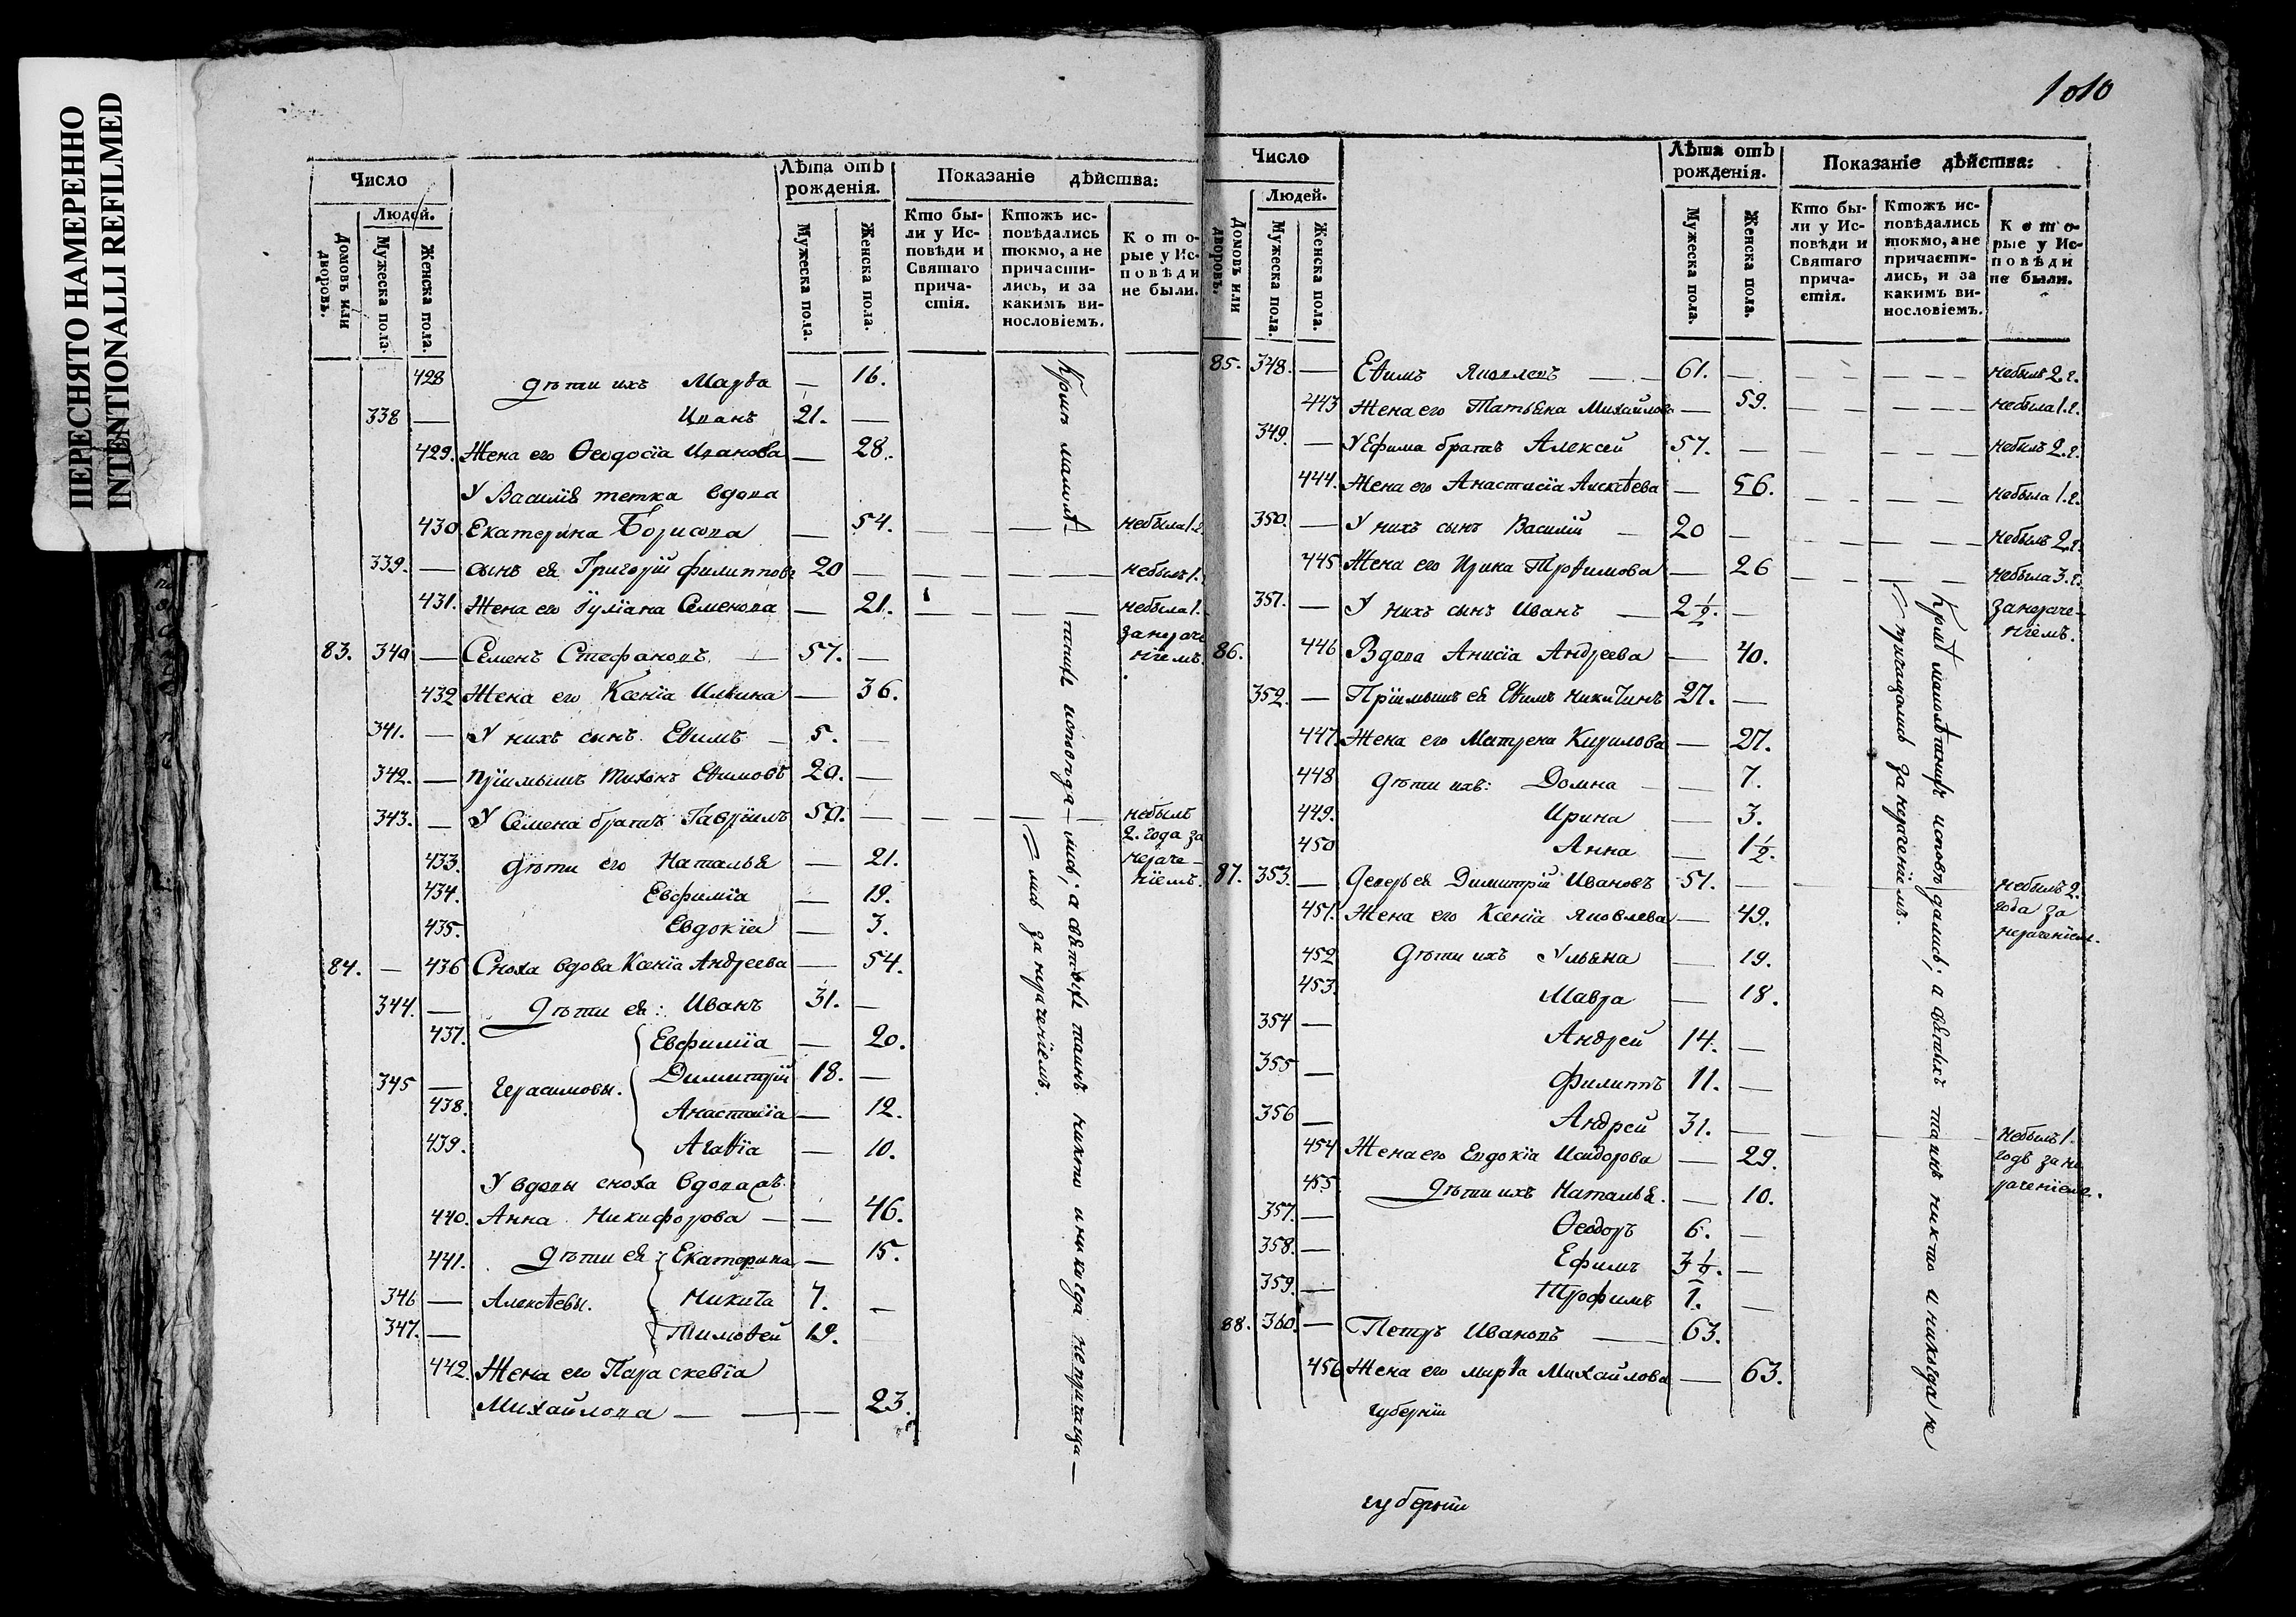 ПЕРЕСНЯТО НАМЕРЕННО
INTENTIONALLI REFILMED
Число
Лѣта отъ рожденія.
Показаніе дѣйства:
Людей.
Домовъ или дворовъ.
Мужеска пола.
Женска пола.
Мужеска пола.
Женска пола.
Кто бы-
ли у Ис-
повѣди и
Святаго
прича-
стія.
Ктожъ ис-
повѣдались
токмо, а не
причасти-
лись, и за
какимъ ви-
нословіемъ.
Кото-
рые у Ис-
повѣди
не были.
428 дѣти ихъ Марѳа — 16.
338 — Иванъ 21. —
429. Жена его Ѳеодосіа Иванова — 28.
У Василіѧ тетка вдова
430 Екатерина Борисова — 54. — — — небыла 1.
339. — сынъ еѧ Григорій Филипповъ 20 — — — — небылъ 1.
431. Жена его Іуліана Семенова — 21. — — — небыла 1.
занераче
ніемъ.
83. 340 — Семенъ Стефановъ — 57. —
432 Жена его Ксеніа Ильина — 36.
341. — У нихъ сынъ Еѳимъ — 5. —
342. — Пріимышъ Тихонъ Еѳимовъ 20. —
343. — У Семена братъ Гавріилъ 50. — — — — небылъ
2. года за
нераче-
ніемъ.
433. дѣти его Натальѧ — 21.
434. Евфиміа — 19.
435. Евдокіа — 3.
84. — 436 Сноха вдова Ксеніа Андреева — 54.
344. — дѣти еѧ: Иванъ 31. —
437. Евфиміа — 20.
345 — Герасимовы. Димитрій 18. —
438. Анастасіа — 12.
439. Агаѳіа — 10.
У вдовы сноха вдова
440. Анна Никифорова — — 46.
441. дѣти еѧ: Екатерина — 15.
346 — Алексѣевы. Никита 7. —
347. — Тимоѳей 19.
442. Жена его Параскевіа
Михайлова — — 23.
Кромѣ малолѣт-
нихъ исповѣда-
лись; а свѧтыхъ таинъ никто и никогда не причаща-
лись за нераченіемъ.
1010
Число
Лѣта отъ рожденія.
Показаніе дѣйства:
Людей.
Домовъ или дворовъ.
Мужеска пола.
Женска пола.
Мужеска пола.
Женска пола.
Кто бы-
ли у Ис-
повѣди и
Святаго
прича-
стія.
Ктожъ ис-
повѣдались
токмо, а не
причасти-
лись, и за
какимъ ви-
нословіемъ.
Кото-
рые у Ис-
повѣди
не были.
85. 348. — Еѳимъ Яковлевъ — — 61. — — — — небылъ 2. г.
443 Жена его Татьѧна Михайлова — 59. — — — небыла 1. г.
349. — У Ефима братъ Алексей 57. — — — — небылъ 2. г.
444. Жена его Анастасіа Алексѣева — 56. — — — небыла 1. г.
350. — У нихъ сынъ Василій — 20 — — — — небылъ 2. г.
445 Жена его Ирина Троѳимова — 26 — — — небыла 3. г.
351. — У нихъ сынъ Иванъ — 2 1/2. —
занераче-
ніемъ.
86. 446 Вдова Анисіа Андреева — 40.
352. — Пріимышъ еѧ Еѳимъ Никитинъ 27. —
447. Жена его Матрена Кирилова — 27.
448 дѣти ихъ: Домна — — 7.
449. Ирина — 3.
450 Анна — 1 1/2.
87. 353. — Деверь еѧ Димитрій Ивановъ 51. — — — — небылъ 2.
года за
нераченіем.
451. Жена его Ксеніа Яковлева — 49.
452 Дѣти ихъ Ульѧна — 19.
453. Мавра — 18.
354 — Андрей 14. —
355 — Филиппъ 11. —
356 — Андрей 31. — — — — Небылъ 1.
годъ за не
раченіем.
454 Жена его Евдокіа Исидорова — 29.
455 Дѣти ихъ Натальѧ. — 10.
357. — Ѳеодоръ 6. —
358. — Ефимъ 3 1/2. —
359. — Трофимъ 1. —
88. 360. — Петръ Ивановъ — 63.
456 Жена его марѳа Михайлова — 63.
Кромѣ малолѣтнихъ исповѣдались; а свѧтыхъ таинъ никто и никогда не
причащались за нераченіемъ.
губерніи
губерніи